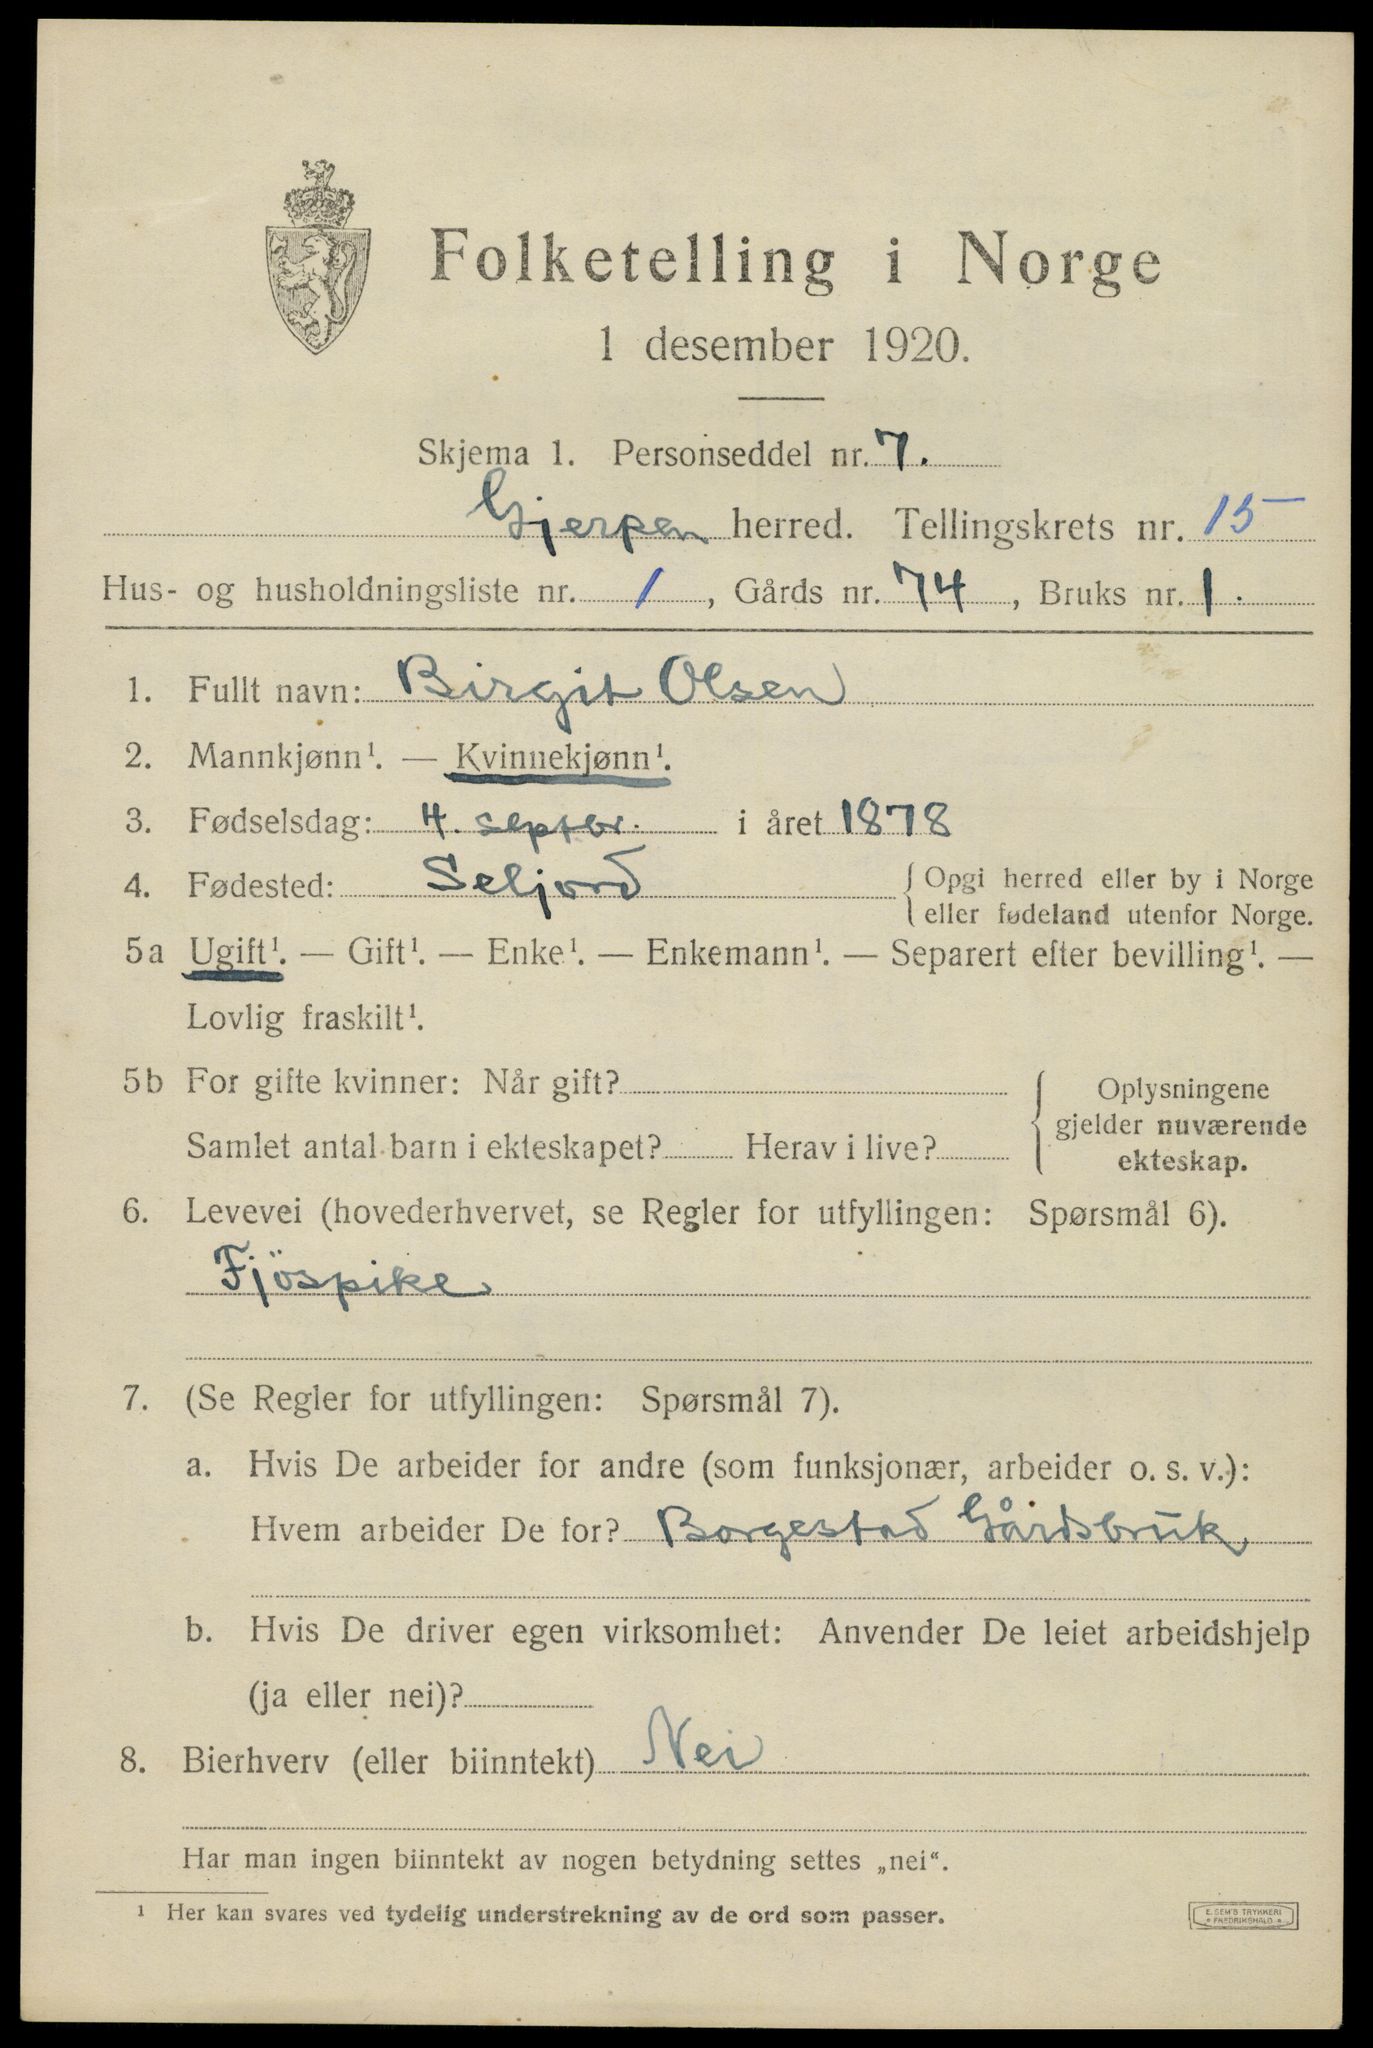 Folketelling i Norge
1 desember 1920.
Skjema 1. Personseddel nr. 7.
Gjerpen herred. Tellingskrets nr. 15
Hus- og husholdningsliste nr. 1, Gårds nr. 74, Bruks nr. 1.
1. Fullt navn: Birgit Olsen
2. Mannkjønn¹. — Kvinnekjønn¹.
3. Fødselsdag: 4. septbr. i året 1878
4. Fødested: Seljord { Opgi herred eller by i Norge
eller fødeland utenfor Norge.
5a Ugift¹. — Gift¹. — Enke¹. — Enkemann¹. — Separert efter bevilling¹. —
Lovlig fraskilt¹.
5b For gifte kvinner: Når gift?
Samlet antal barn i ekteskapet? Herav i live?
{ Oplysningene
gjelder nuværende
ekteskap.
6. Levevei (hovederhvervet, se Regler for utfyllingen: Spørsmål 6).
Fjöspike
7. (Se Regler for utfyllingen: Spørsmål 7).
a. Hvis De arbeider for andre (som funksjonær, arbeider o. s. v.):
Hvem arbeider De for? Borgestad Gårdsbruk
b. Hvis De driver egen virksomhet: Anvender De leiet arbeidshjelp
(ja eller nei)?
8. Bierhverv (eller biinntekt) Nei
Har man ingen biinntekt av nogen betydning settes „nei“.
¹ Her kan svares ved tydelig understrekning av de ord som passer.
E. SEM'S TRYKKERI
FREDRIKSHALD